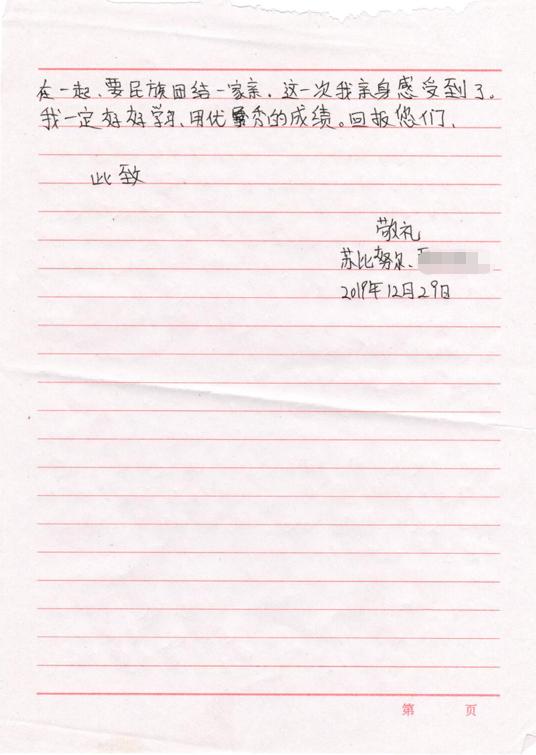 在一起、要民族团结一家亲，这一次我亲身感受到了。
我一定好好学习、用优秀的成绩。回报您们、
此致
敬礼
苏比努尔、
2019年12月29日
第 页